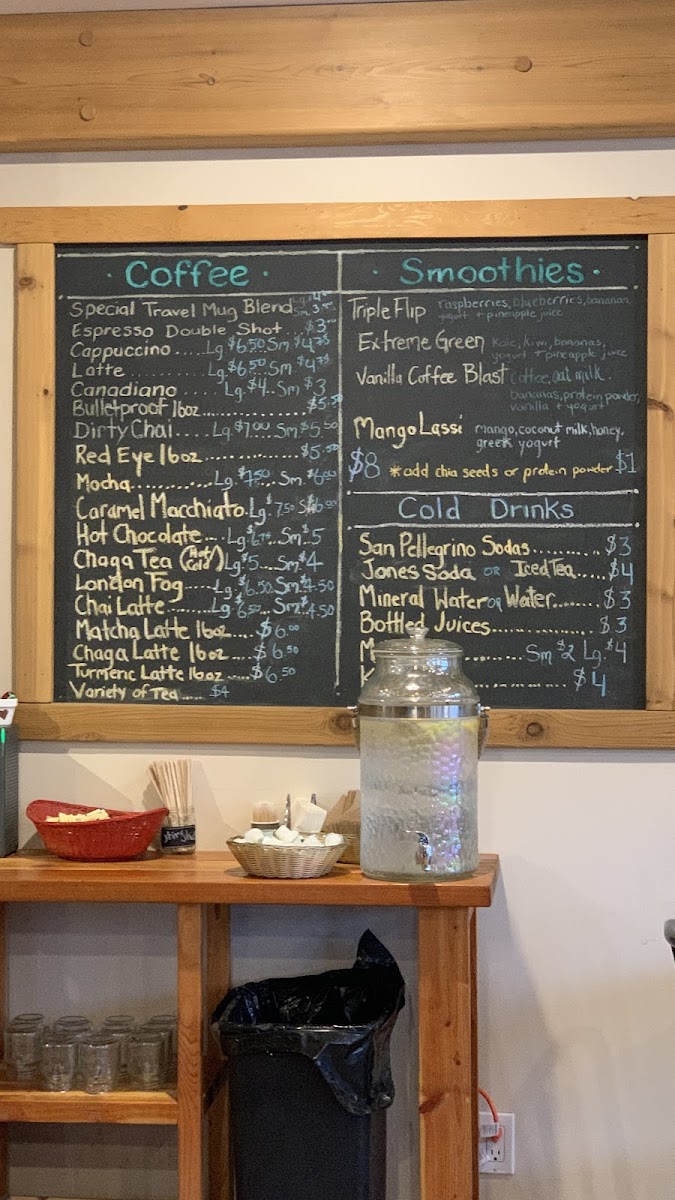 · Coffee ·
Special Travel Mug Blend
Espresso Double Shot ... $3
Cappuccino ..... Lg $6.50 Sm $4.75
Latte ........ Lg $6.50 Sm $4.75
Canadiano ...... Lg. $4.. Sm $3
Bulletproof 16oz .............. $5.50
Dirty Chai .... Lg. $7.00 Sm. $5.50
Red Eye 16oz .............. $5.50
Mocha .......... Lg. $7.50 .. Sm. $6.00
Caramel Macchiato. Lg. $7.50 Sm $6.00
Hot Chocolate ... Lg. Sm. $5
Chaga Tea (Hot/Cold) Lg $5.... Sm. $4
London Fog ..... Lg. $6.50 Sm. $4.50
Chai Latte ...... Lg. $6.50.. Sm. $4.50
Matcha Latte 16oz .... $6.00
Chaga Latte 16oz .... $6.50
Turmeric Latte 16oz ..... $6.50
Variety of Tea ..... $4
· Smoothies ·
Triple Flip raspberries, blueberries, bananas,
yogurt + pineapple juice
Extreme Green Kale, kiwi, bananas,
yogurt + pineapple juice
Vanilla Coffee Blast Coffee, oat milk,
bananas, protein powder,
vanilla + yogurt
Mango Lassi mango, coconut milk, honey,
greek yogurt
$8 *add chia seeds or protein powder $1
Cold Drinks
San Pellegrino Sodas .......... $3
Jones Soda or Iced Tea ..... $4
Mineral Water or Water ........ $3
Bottled Juices ................ $3
M .......... Sm $2 Lg. $4
K .............. $4